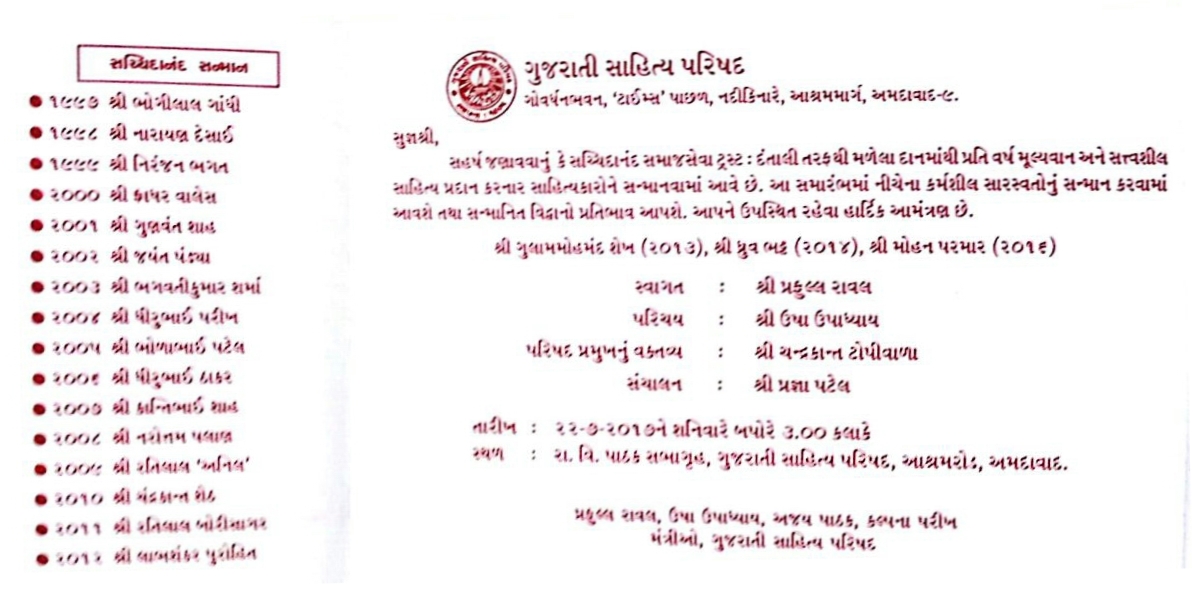 સચ્ચિદાનંદ સન્માન
૧૯૯૭ શ્રી ભોગીલાલ ગાંધી
૧૯૯૮ શ્રી નારાયણ દેસાઈ
૧૯૯૯ શ્રી નિરંજન ભગત
૨૦૦૦ શ્રી ફાધર વાલેસ
૨૦૦૧ શ્રી ગુણવંત શાહ
૨૦૦૨ શ્રી જયંત પંડ્યા
૨૦૦૩ શ્રી ભગવતીકુમાર શર્મા
૨૦૦૪ શ્રી ધીરુભાઈ પરીખ
૨૦૦૫ શ્રી ભોળાભાઈ પટેલ
૨૦૦૬ શ્રી ધીરુભાઈ ઠાકર
૨૦૦૭ શ્રી કાન્તિભાઈ શાહ
૨૦૦૮ શ્રી નરોત્તમ પલાણ
૨૦૦૯ શ્રી રતિલાલ ‘અનિલ’
૨૦૧૦ શ્રી ચંદ્રકાન્ત શેઠ
૨૦૧૧ શ્રી રતિલાલ બોરીસાગર
૨૦૧૨ શ્રી લાભશંકર પુરોહિત
ગુજરાતી સાહિત્ય પરિષદ
ગોવર્ધનભવન, ‘ટાઈમ્સ’ પાછળ, નદીકિનારે, આશ્રમમાર્ગ, અમદાવાદ-૯.
સુજ્ઞશ્રી,
સહર્ષ જણાવવાનું કે સચ્ચિદાનંદ સમાજસેવા ટ્રસ્ટ : દંતાલી તરફથી મળેલા દાનમાંથી પ્રતિ વર્ષ મૂલ્યવાન અને સત્ત્વશીલ
સાહિત્ય પ્રદાન કરનાર સાહિત્યકારોને સન્માનવામાં આવે છે. આ સમારંભમાં નીચેના કર્મશીલ સારસ્વતોનું સન્માન કરવામાં
આવશે તથા સન્માનિત વિદ્વાનો પ્રતિભાવ આપશે. આપને ઉપસ્થિત રહેવા હાર્દિક આમંત્રણ છે.
શ્રી ગુલામમોહંમદ શેખ (૨૦૧૩), શ્રી ધ્રુવ ભટ્ટ (૨૦૧૪), શ્રી મોહન પરમાર (૨૦૧૬)
સ્વાગત : શ્રી પ્રફુલ્લ રાવલ
પરિચય : શ્રી ઉષા ઉપાધ્યાય
પરિષદ પ્રમુખનું વક્તવ્ય : શ્રી ચન્દ્રકાન્ત ટોપીવાળા
સંચાલન : શ્રી પ્રજ્ઞા પટેલ
તારીખ : ૨૨-૭-૨૦૧૭ને શનિવારે બપોરે ૩.૦૦ કલાકે
સ્થળ : રા. વિ. પાઠક સભાગૃહ, ગુજરાતી સાહિત્ય પરિષદ, આશ્રમરોડ, અમદાવાદ.
પ્રફુલ્લ રાવલ, ઉષા ઉપાધ્યાય, અજય પાઠક, કલ્પના પરીખ
મંત્રીઓ, ગુજરાતી સાહિત્ય પરિષદ